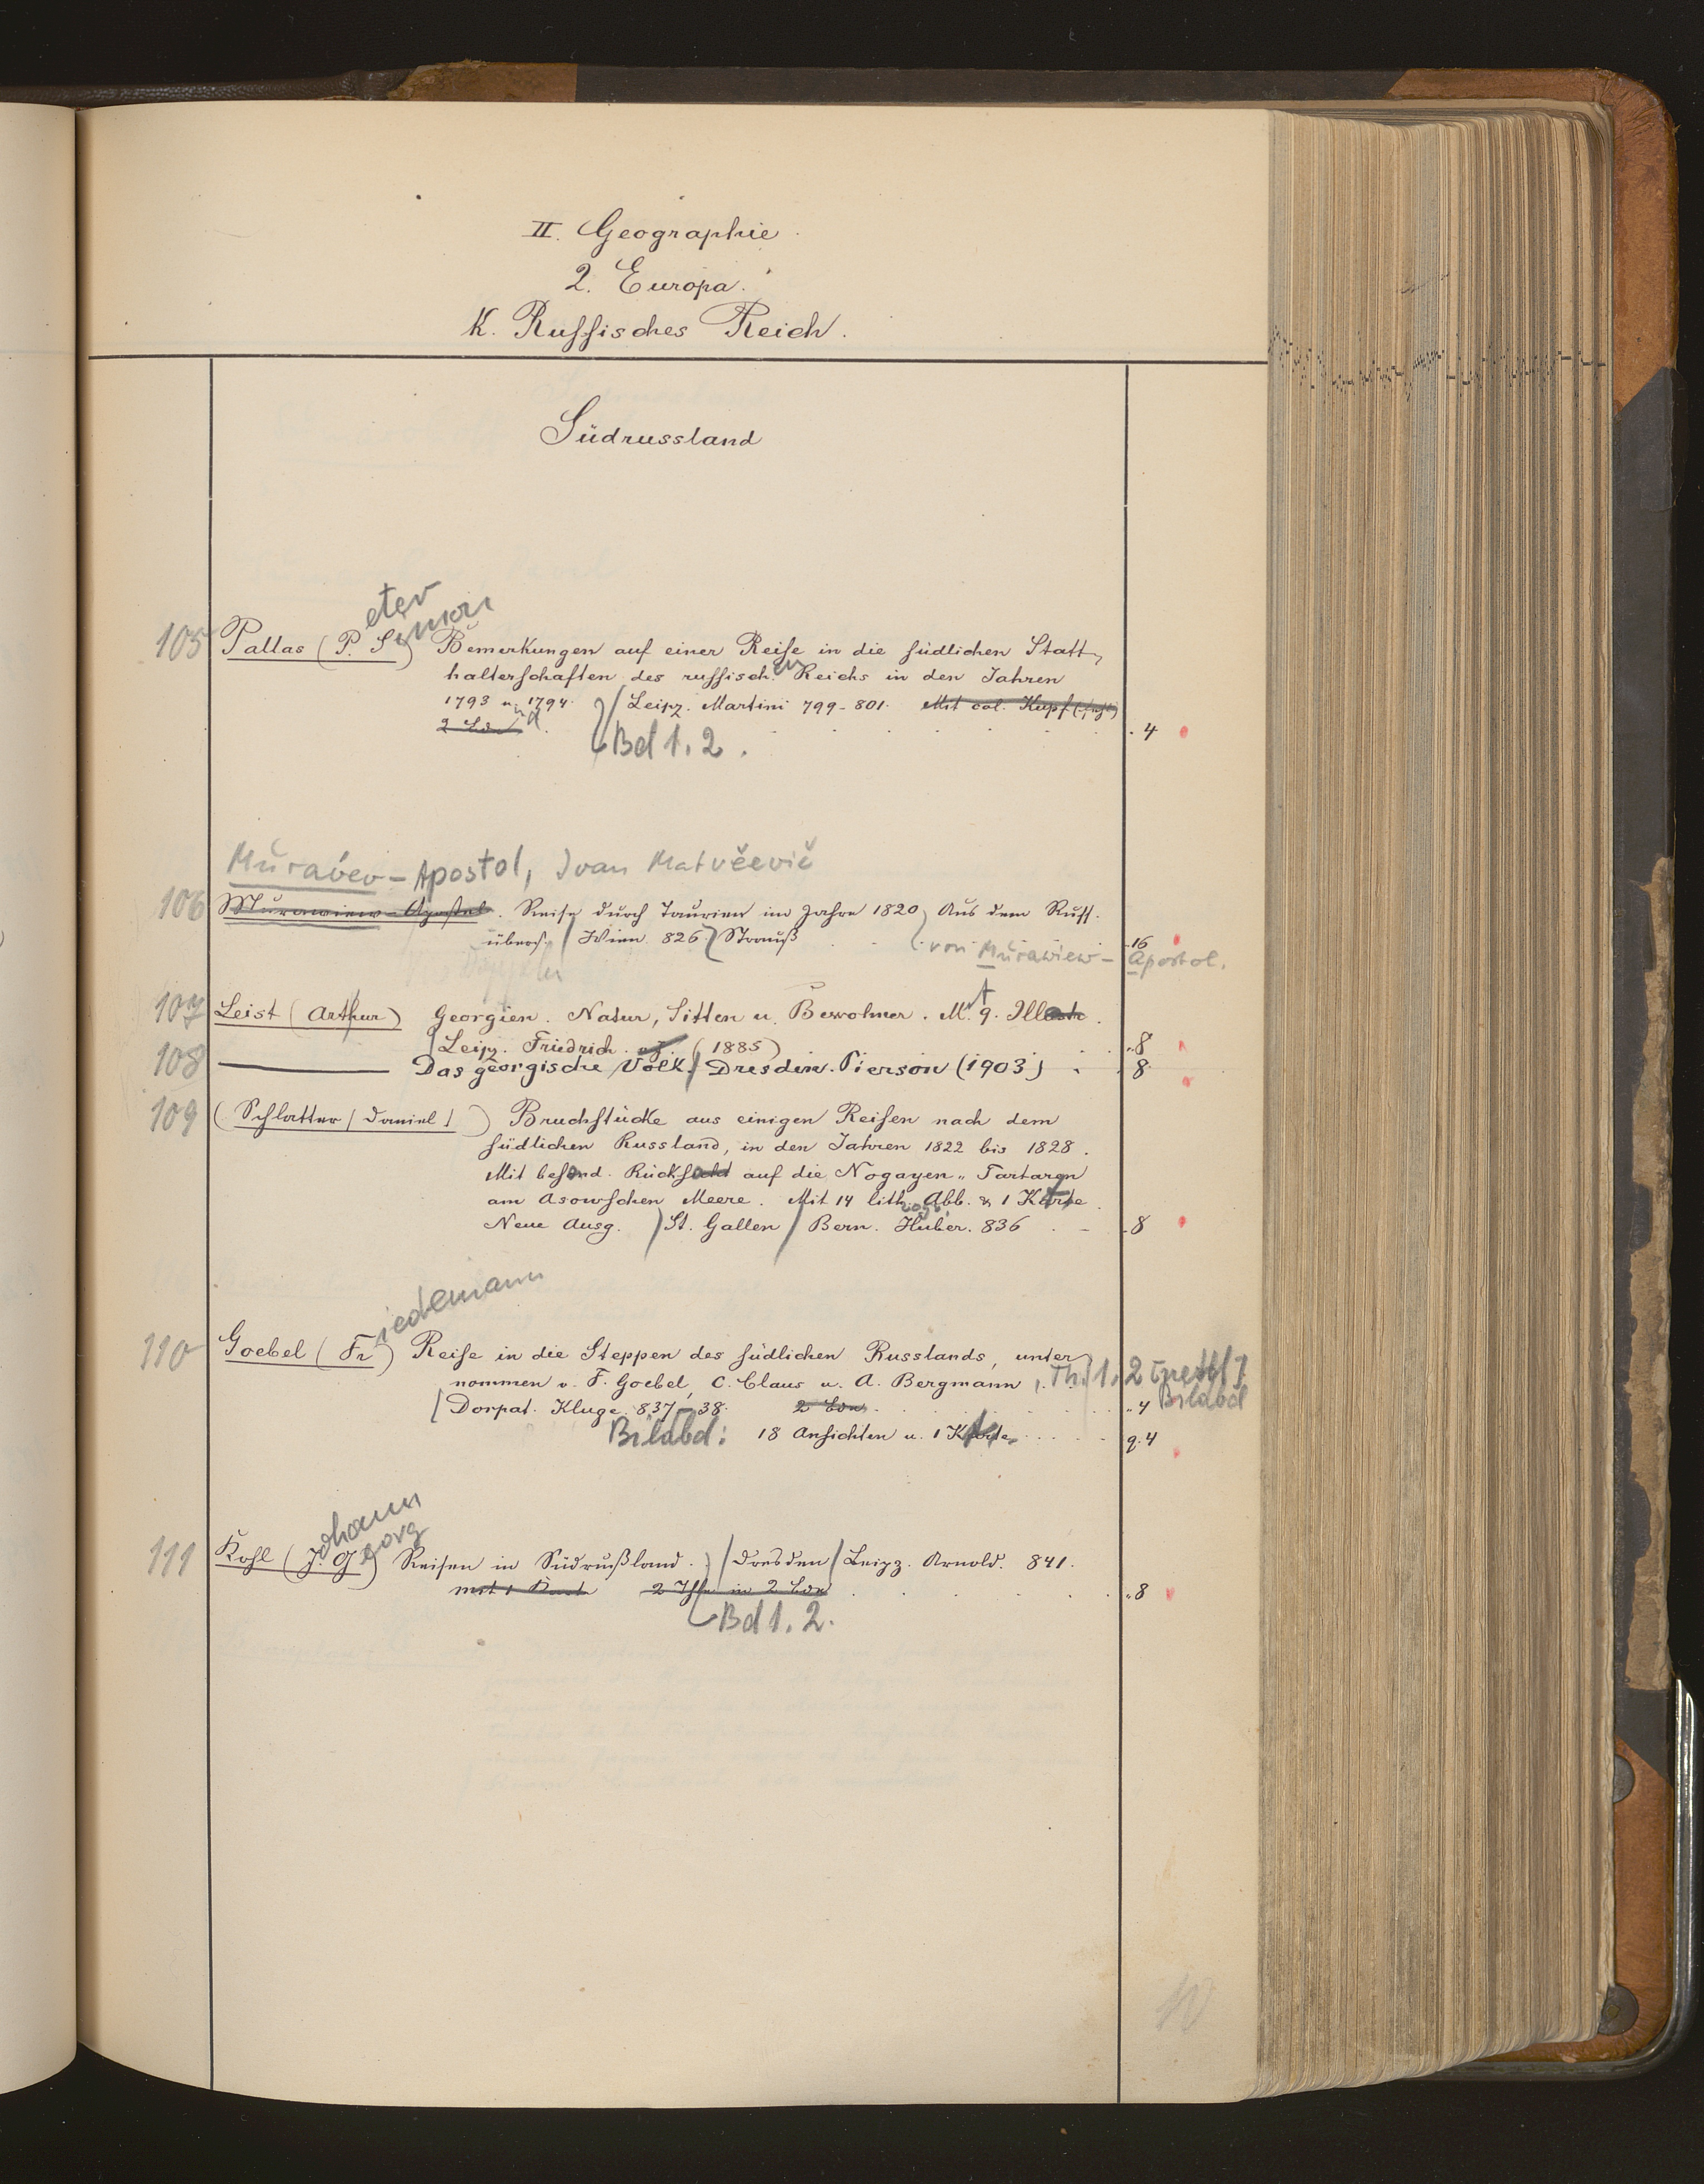 II. Geographie.
2. Europa.
K. Russisches Reich.
Südrussland
105 Pallas (P.eter S.imon) Bemerkungen auf einer Reise in die südlichen Statt-
halterschaften des russischen Reichs in den Jahren
1793 und 1794. / Leipz. Martini 799-801. Mit col. Kupf
2 Bde Bd 1. 2. 4
Muravev-Apostol, Ivan Matvěevič
106 Murawiew-Apostol. Reise durch Taurien im Jahre 1820, Aus dem Russ.
übers. / Wien 826 Strauß von Murawiew-Apostol. 16
107 Leist (Arthur) Georgien. Natur, Sitten u. Bewohner. Mit 9. Ill
/ Leipz. Friedrich. (1885) 8
108 ——— Das georgische Volk. / Dresden. Pierson (1903) 8
109 (Schlatter / Daniel /) Bruchstücke aus einigen Reisen nach dem
südlichen Russland, in den Jahren 1822 bis 1828.
Mit besond. Rücks auf die Nogayen-Tartaren
am Asowschen Meere. Mit 14 lith. Abb. & 1 Karte.
Neue Ausg. / St. Gallen / Bern. Huber. 836 8
110 Goebel (Friedemann) Reise in die Steppen des südlichen Russlands, unter
nommen v. F. Goebel, C. Claus u. A. Bergmann, Th. 1. 2
/ Dorpat. Kluge. 837-38. 2 Bde 4 Bilabd
Bilabd: 18 Ansichten u. 1 Karte q. 4
111 Kohl (Johann Georg) Reisen in Südrußland. / Dresden / Leipz. Arnold. 841.
mit 1 Karte 2 Thle in 2 Bde 8
Bd 1. 2.
10